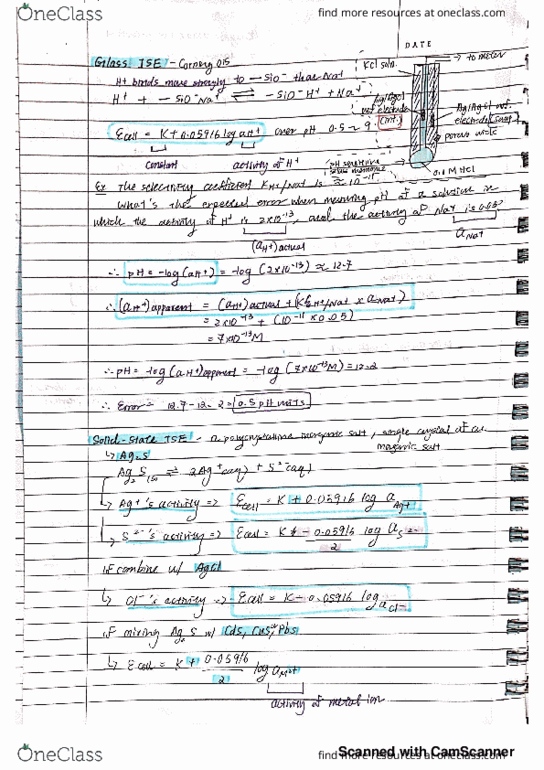 OneClass
find more resources at oneclass.com
DATE
Glass ISE - Corning 015
KCl soln.
→ to meter
H⁺ bonds more strongly to -SiO⁻ than Na⁺
H⁺ + -SiO⁻Na⁺ ⇌ -SiO⁻H⁺ + Na⁺
Ag/AgCl ref electrode (int.)
Ag/AgCl ref.
porous
Ecell = K + 0.05916 log aH⁺ over pH 0.5 ~ 9.
constant
activity of H⁺
pH sensitive glass membrane
0.1 M HCl
Ex The selectivity coefficient KH⁺/Na⁺ is ≈ 10⁻¹¹
What's the expected error when measuring pH of a solution in
which the activity of H⁺ is 2x10⁻¹³, and the activity of Na⁺ is 0.05?
(aH⁺)actual
aNa⁺
∴ pH = -log(aH⁺) = -log(2x10⁻¹³) ≈ 12.7
∴ (aH⁺)apparent = (aH⁺)actual + (KH⁺/Na⁺ x aNa⁺)
= 2x10⁻¹³ + (10⁻¹¹ x 0.05)
= 7x10⁻¹³M
∴ pH = -log(aH⁺)apparent = -log(7x10⁻¹³M) = 12.2
∴ Error = 12.7 - 12.2 = 0.5 pH units
Solid-State ISE - a polycrystalline inorganic salt, single crystal of an
inorganic salt
↳ Ag₂S
Ag₂S(s) ⇌ 2Ag⁺(aq) + S²⁻(aq)
↳ Ag⁺'s activity => Ecell = K + 0.05916 log aAg⁺
↳ S²⁻'s activity => Ecell = K - 0.05916/2 log aS²⁻
if combine w/ AgCl
↳ Cl⁻'s activity => Ecell = K - 0.05916 log aCl⁻
if mixing Ag₂S w/ CdS, CuS, PbS
↳ Ecell = K + 0.05916/2 log aM²⁺
activity of metal ion
OneClass
find more resources at oneclass.com
Scanned with CamScanner